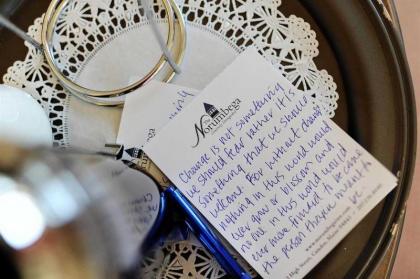 Norumbega
Change is not something
we should fear rather it is
something that we should
welcome. For without change
nothing in this world would
ever grow or blossom and
no one in this world would
ever move forward to become
the person they're meant to
be.